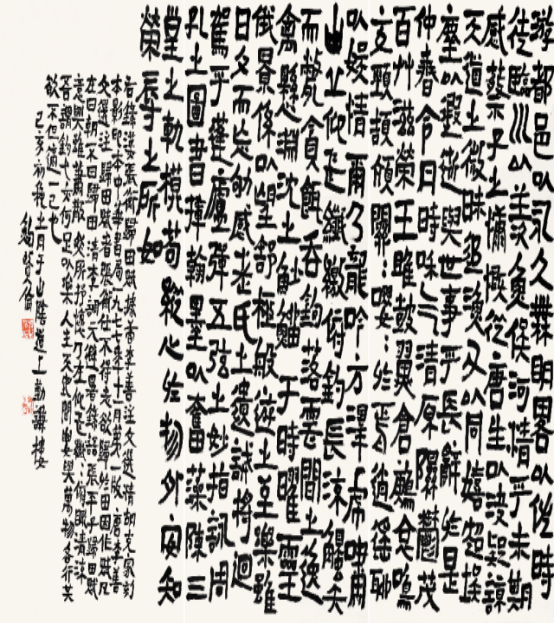 遊都邑以永久無明略以佐時
徒臨川以羨魚俟河清乎未期
感蔡子之慷慨從唐生以決疑諒
天道之微昧追漁父以同嬉超埃
塵以遐逝與世事乎長辭於是
仲春令月時和氣清原隰鬱茂
百艸滋榮王雎鼓翼倉鶊哀鳴
交頸頡頏關關嚶嚶於焉逍遙聊
以娛情爾乃龍吟方澤虎嘯
山丘仰飛纖繳俯釣長流觸矢
而斃貪餌吞鉤落雲間之逸
禽懸淵沈之魦鰡于時曜靈
俄景係以望舒極般遊之至樂雖
日夕而忘劬感老氏之遺誡將迴
駕乎蓬廬彈五弦之妙指詠周
孔之圖書揮翰墨以奮藻陳三
皇之軌模苟縱心於物外安知
榮辱之所如
右錄漢張衡歸田賦據李善注文選清胡克家刻
本影印本中華書局一九七七年十一月第一版 唐李善
文選注歸田賦者張衡仕不得志欲歸於田因作此賦凡
在曰朝不曰歸田 清李調元 張平子歸田賦
仰飛纖繳俯釣長流
人生 與萬物
欲不但適一己也
己亥初秋七月于山陰道上